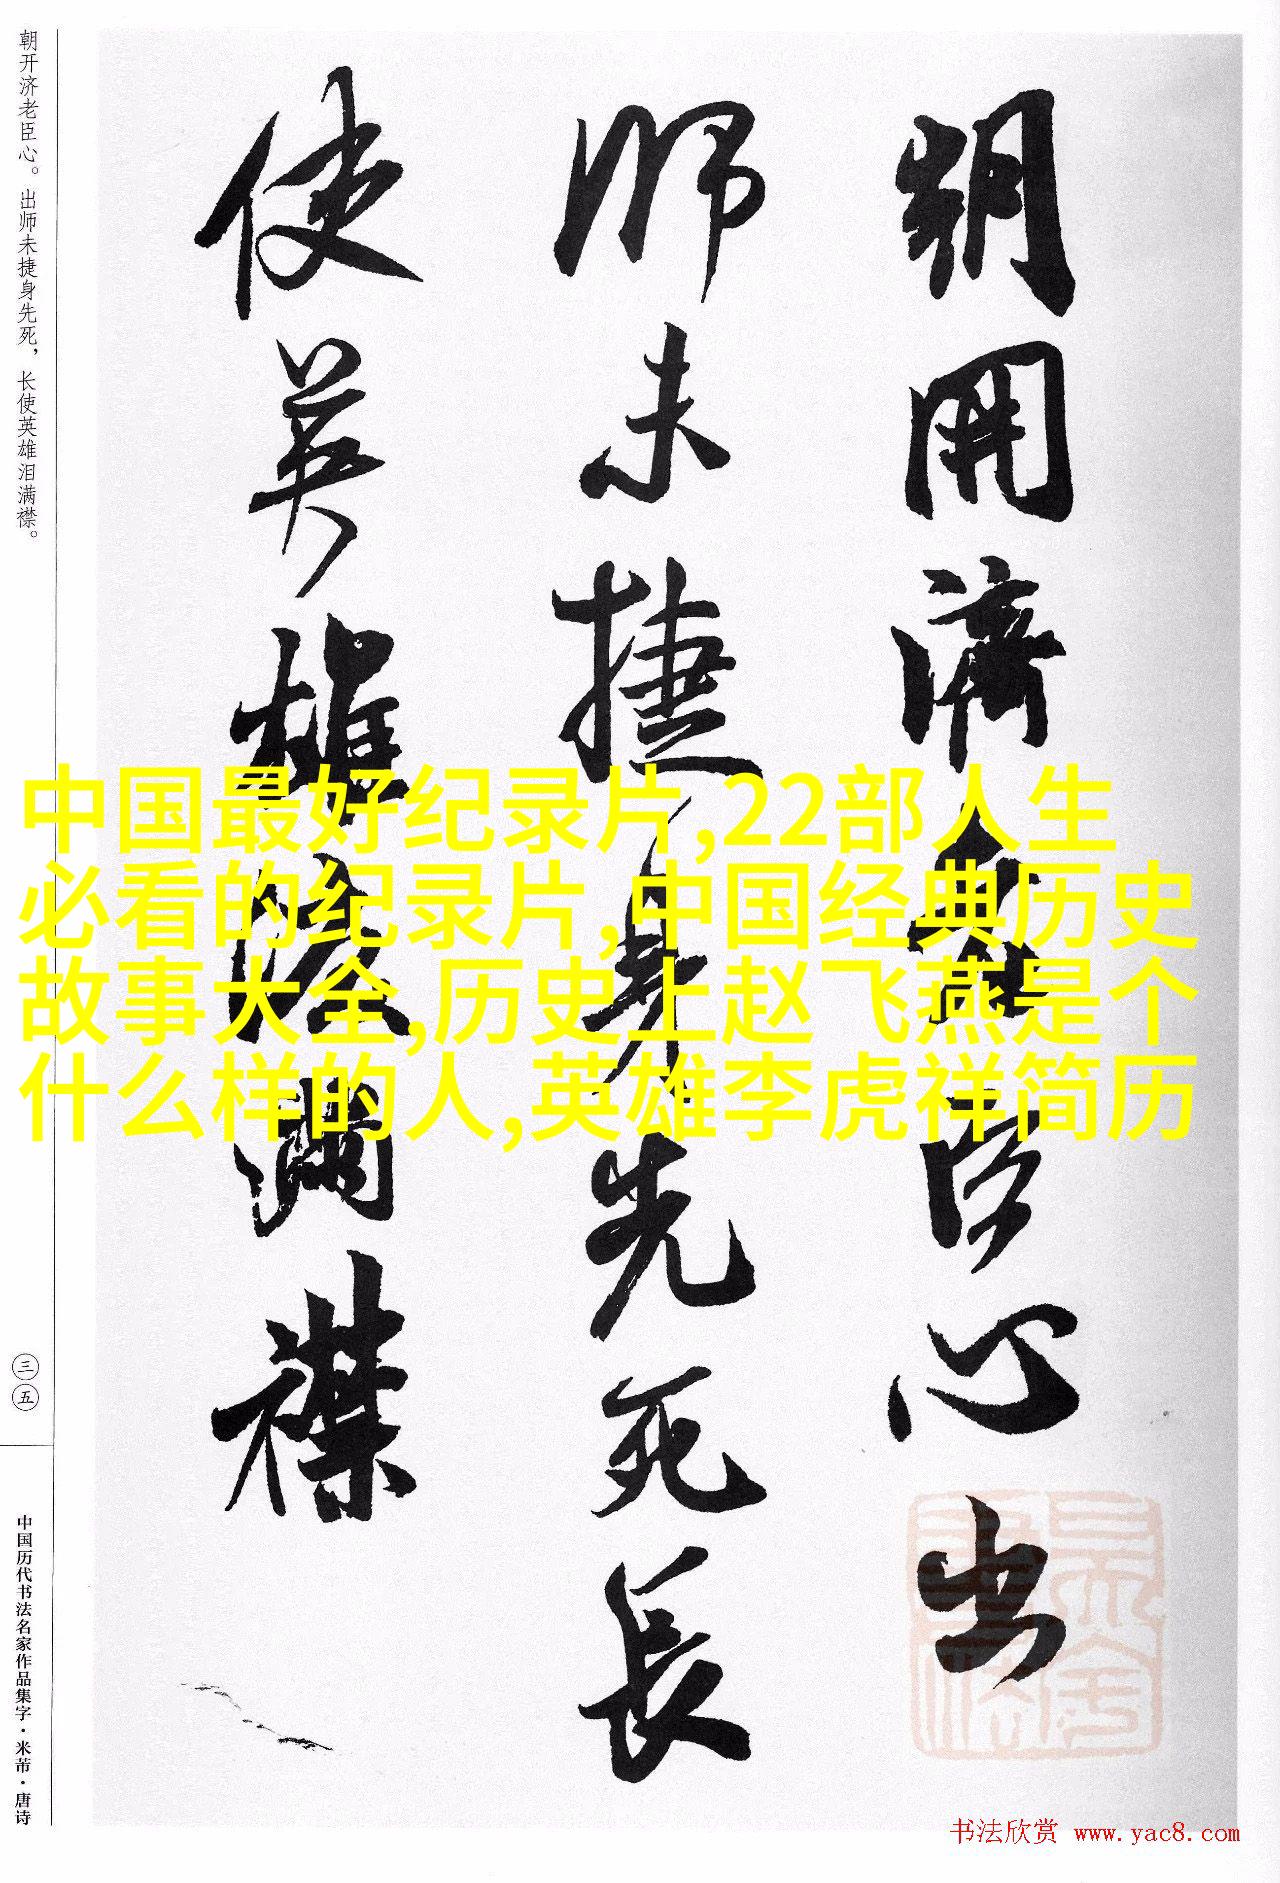 朝開濟老臣心出
師未捷身先死長
使英雄淚滿襟
朝开济老臣心。出师未捷身先死，长使英雄泪满襟。
三五
中国历代书法名家作品集字·米芾·唐诗
中国最好纪录片,22部人生
必看的纪录片,中国经典历史
故事大全,历史上赵飞燕是个
什么样的人,英雄李虎祥简历
书法欣赏 www.yac8.com